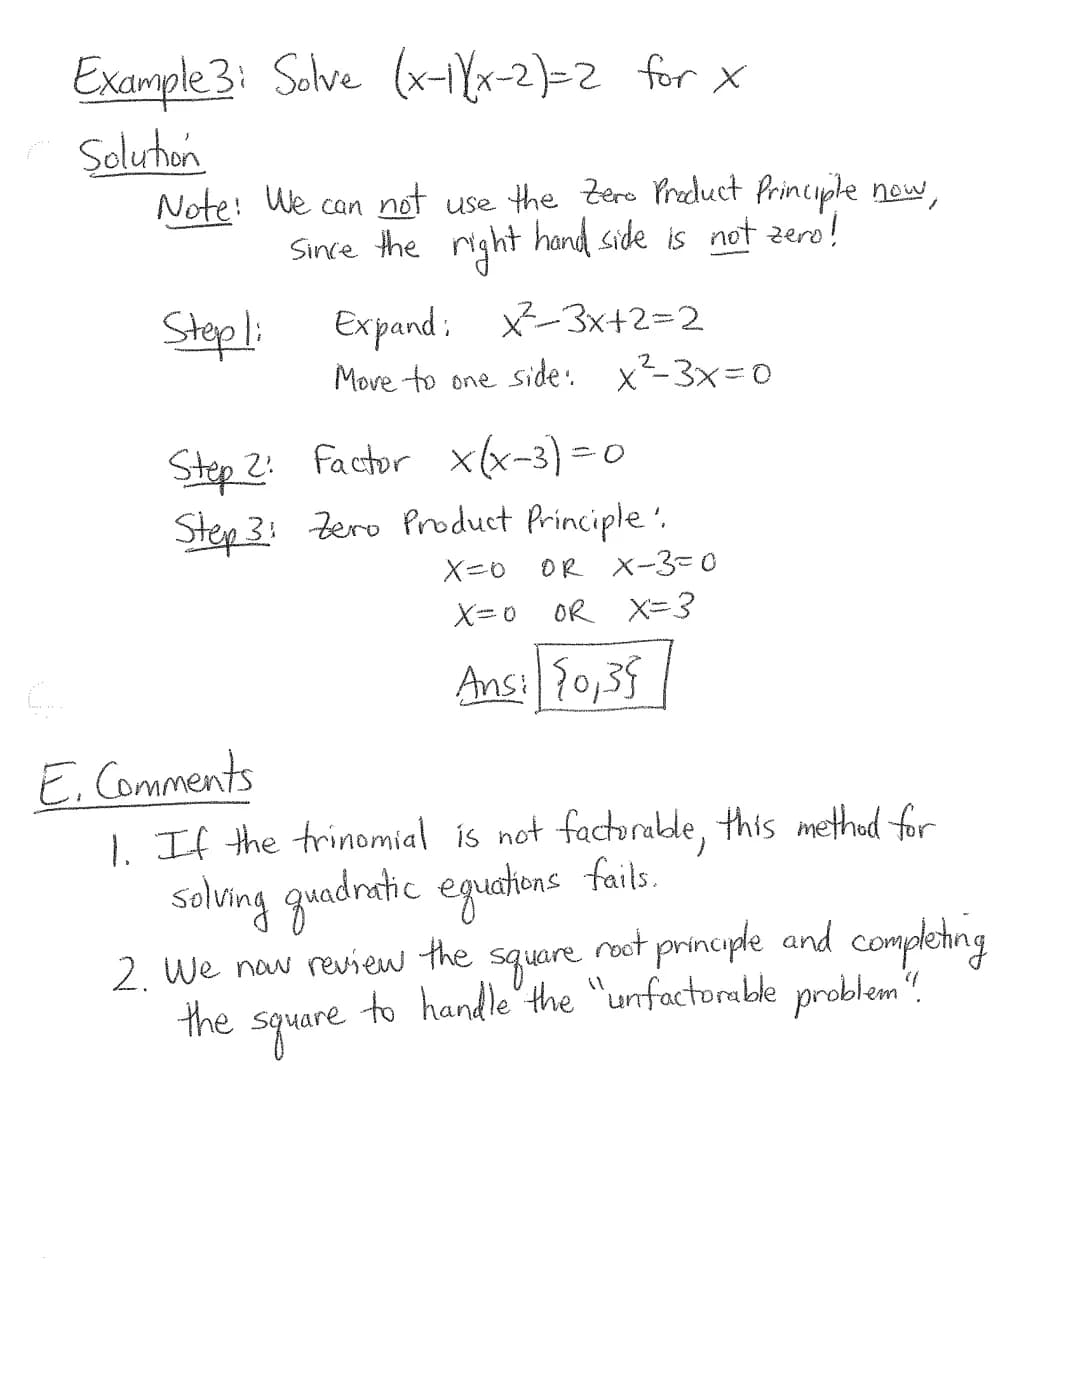 Example 3: Solve (x-1)(x-2)=2 for x
Solution
Note: We can not use the Zero Product Principle now,
Since the right hand side is not zero!
Step 1: Expand: x²-3x+2=2
Move to one side: x²-3x=0
Step 2: Factor x(x-3)=0
Step 3: Zero Product Principle:
x=0 OR x-3=0
x=0 OR x=3
Ans: {0,3}
E. Comments
1. If the trinomial is not factorable, this method for
solving quadratic equations fails.
2. We now review the square root principle and completing
the square to handle the "unfactorable problem".